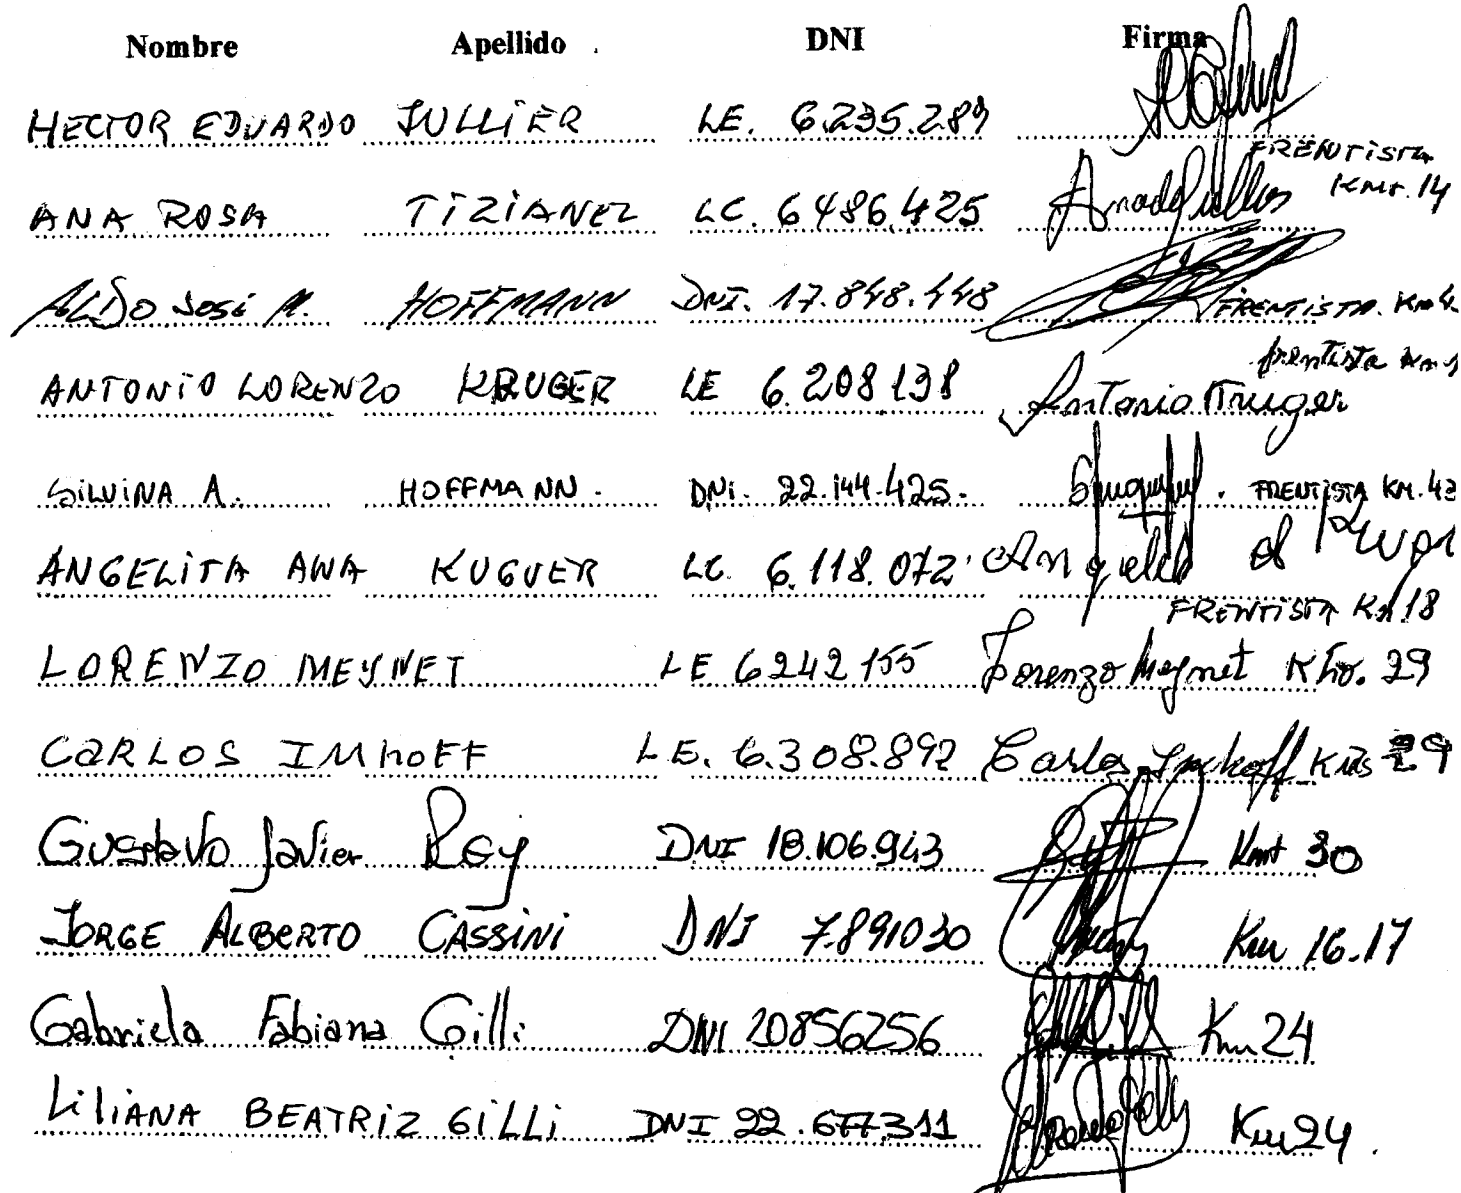 Nombre Apellido DNI Firma
HECTOR EDUARDO JULLIER LE. 6.235.289
FRENTISTA
Kmt. 14
ANA ROSA TIZIANEL LC. 6486.425
ALDO José M. HOFFMANN DNI. 17.848.448
FRENTISTA. Km
frentista Km
ANTONIO LORENZO KRUGER LE 6.208138 Antonio Kruger
SILVINA A. HOFFMANN. DNI. 22.144.425. FRENTISTA KM. 43
ANGELITA ANA KUGUER LC. 6.118.072 Angelita
FRENTISTA Km 18
LORENZO MEYNET LE 6242155 Lorenzo Meynet 29
CARLOS IMhOFF LE. 6.308.892 Carlos Imhoff Kms 29
Gustavo Javier Rey DNI 18.106.943 Kmt 30
JORGE ALBERTO CASSINI DNI 7.891030 Km 16.17
Gabriela Fabiana Gilli DNI 20856256 Km 24
LILIANA BEATRIZ GILLI DNI 22.677311 Km 24.